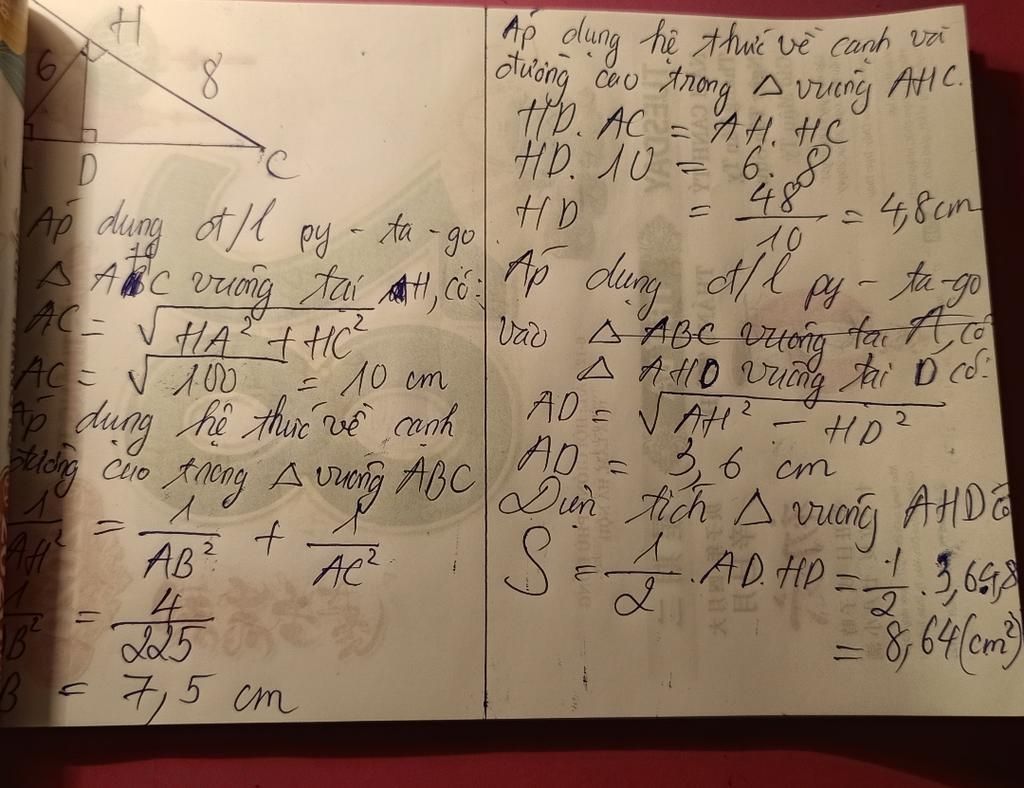 H
6
8
D
C
Áp dụng đ/l py - ta - go
Δ AHC vuông tại H, có:
AC = √HA² + HC²
AC = √100 = 10 cm
Áp dụng hệ thức về cạnh
đường cao trong Δ vuông ABC
1/AH² = 1/AB² + 1/AC²
1/B² = 4/225
B = 7,5 cm
Áp dụng hệ thức về cạnh và
đường cao trong Δ vuông AHC.
HD. AC = AH. HC
HD. 10 = 6. 8
HD = 48/10 = 4,8 cm
Áp dụng đ/l py - ta-go
vào Δ ABC vuông tại A, có
Δ AHD vuông tại D có:
AD = √AH² - HD²
AD = 3,6 cm
Diện tích Δ vuông AHD có
S = 1/2 . AD. HD = 1/2 . 3,6.4,8
= 8,64 (cm²)